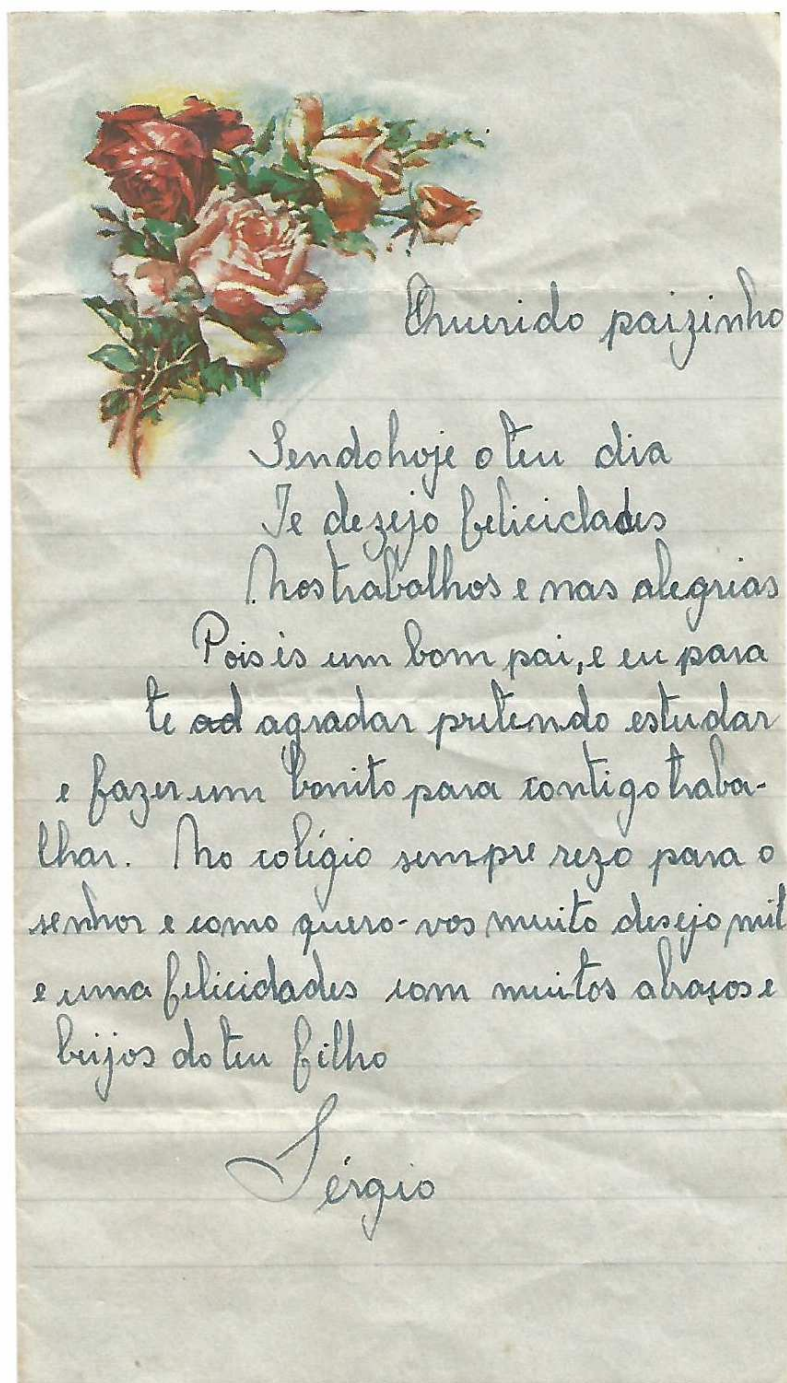 Querido paizinho
Sendo hoje o teu dia
Te dezejo felicidades
Nos trabalhos e nas alegrias
Pois és um bom pai, e eu para
te ad agradar pretendo estudar
e fazer um bonito para contigo traba-
lhar. No colégio sempre rezo para o
senhor e como quero-vos muito desejo mil
e uma felicidades com muitos abraços e
beijos do teu filho
Sérgio